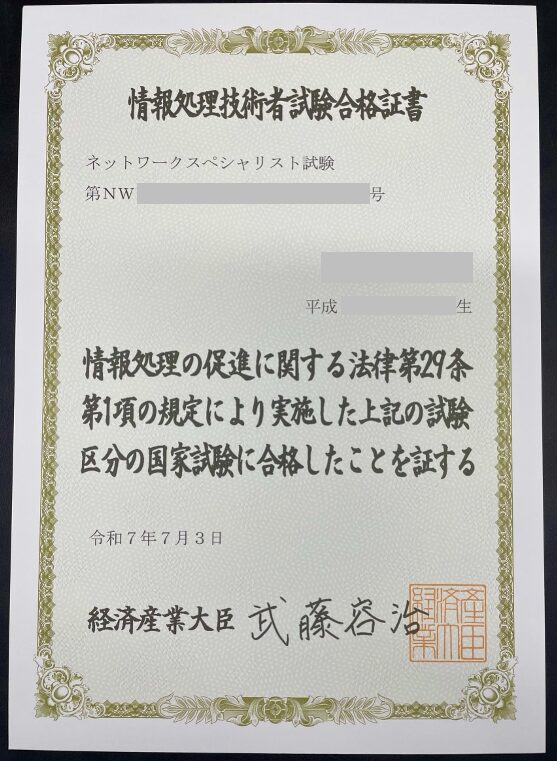 情報処理技術者試験合格証書
ネットワークスペシャリスト試験
第NW 号
平成 生
情報処理の促進に関する法律第29条
第1項の規定により実施した上記の試験
区分の国家試験に合格したことを証する
令和7年7月3日
経済産業大臣 武藤容治
経済産業大臣